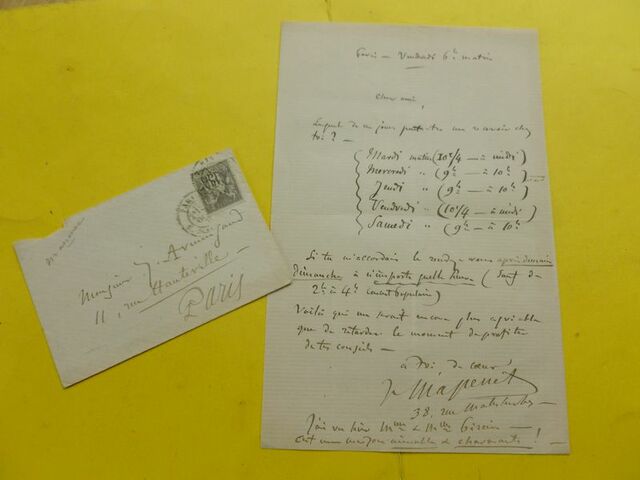 Paris - Vendredi 6h matin
Cher ami,
Lequel de ces jours peut-être me recevoir chez
toi ? -
Mardi matin (10h 1/4 - à midi)
Mercredi " (9h - à 10h)
Jeudi " (9h - à 10h)
Vendredi " (10h 1/4 - à midi)
Samedi " (9h - à 10h)
Si tu m'accordais le rendez-vous après demain
Dimanche à n'importe quelle heure (sauf de
2h à 4h concert Populaire)
Voilà qui me serait encore plus agréable
que de retarder le moment de profiter
de tes conseils -
à Toi, de cœur !
J. Massenet
38, rue Malesherbes -
J'ai vu hier Mme & Mme
ont été aimables & charmants !
Monsieur J. Armingaud
11, rue Hauteville -
Paris